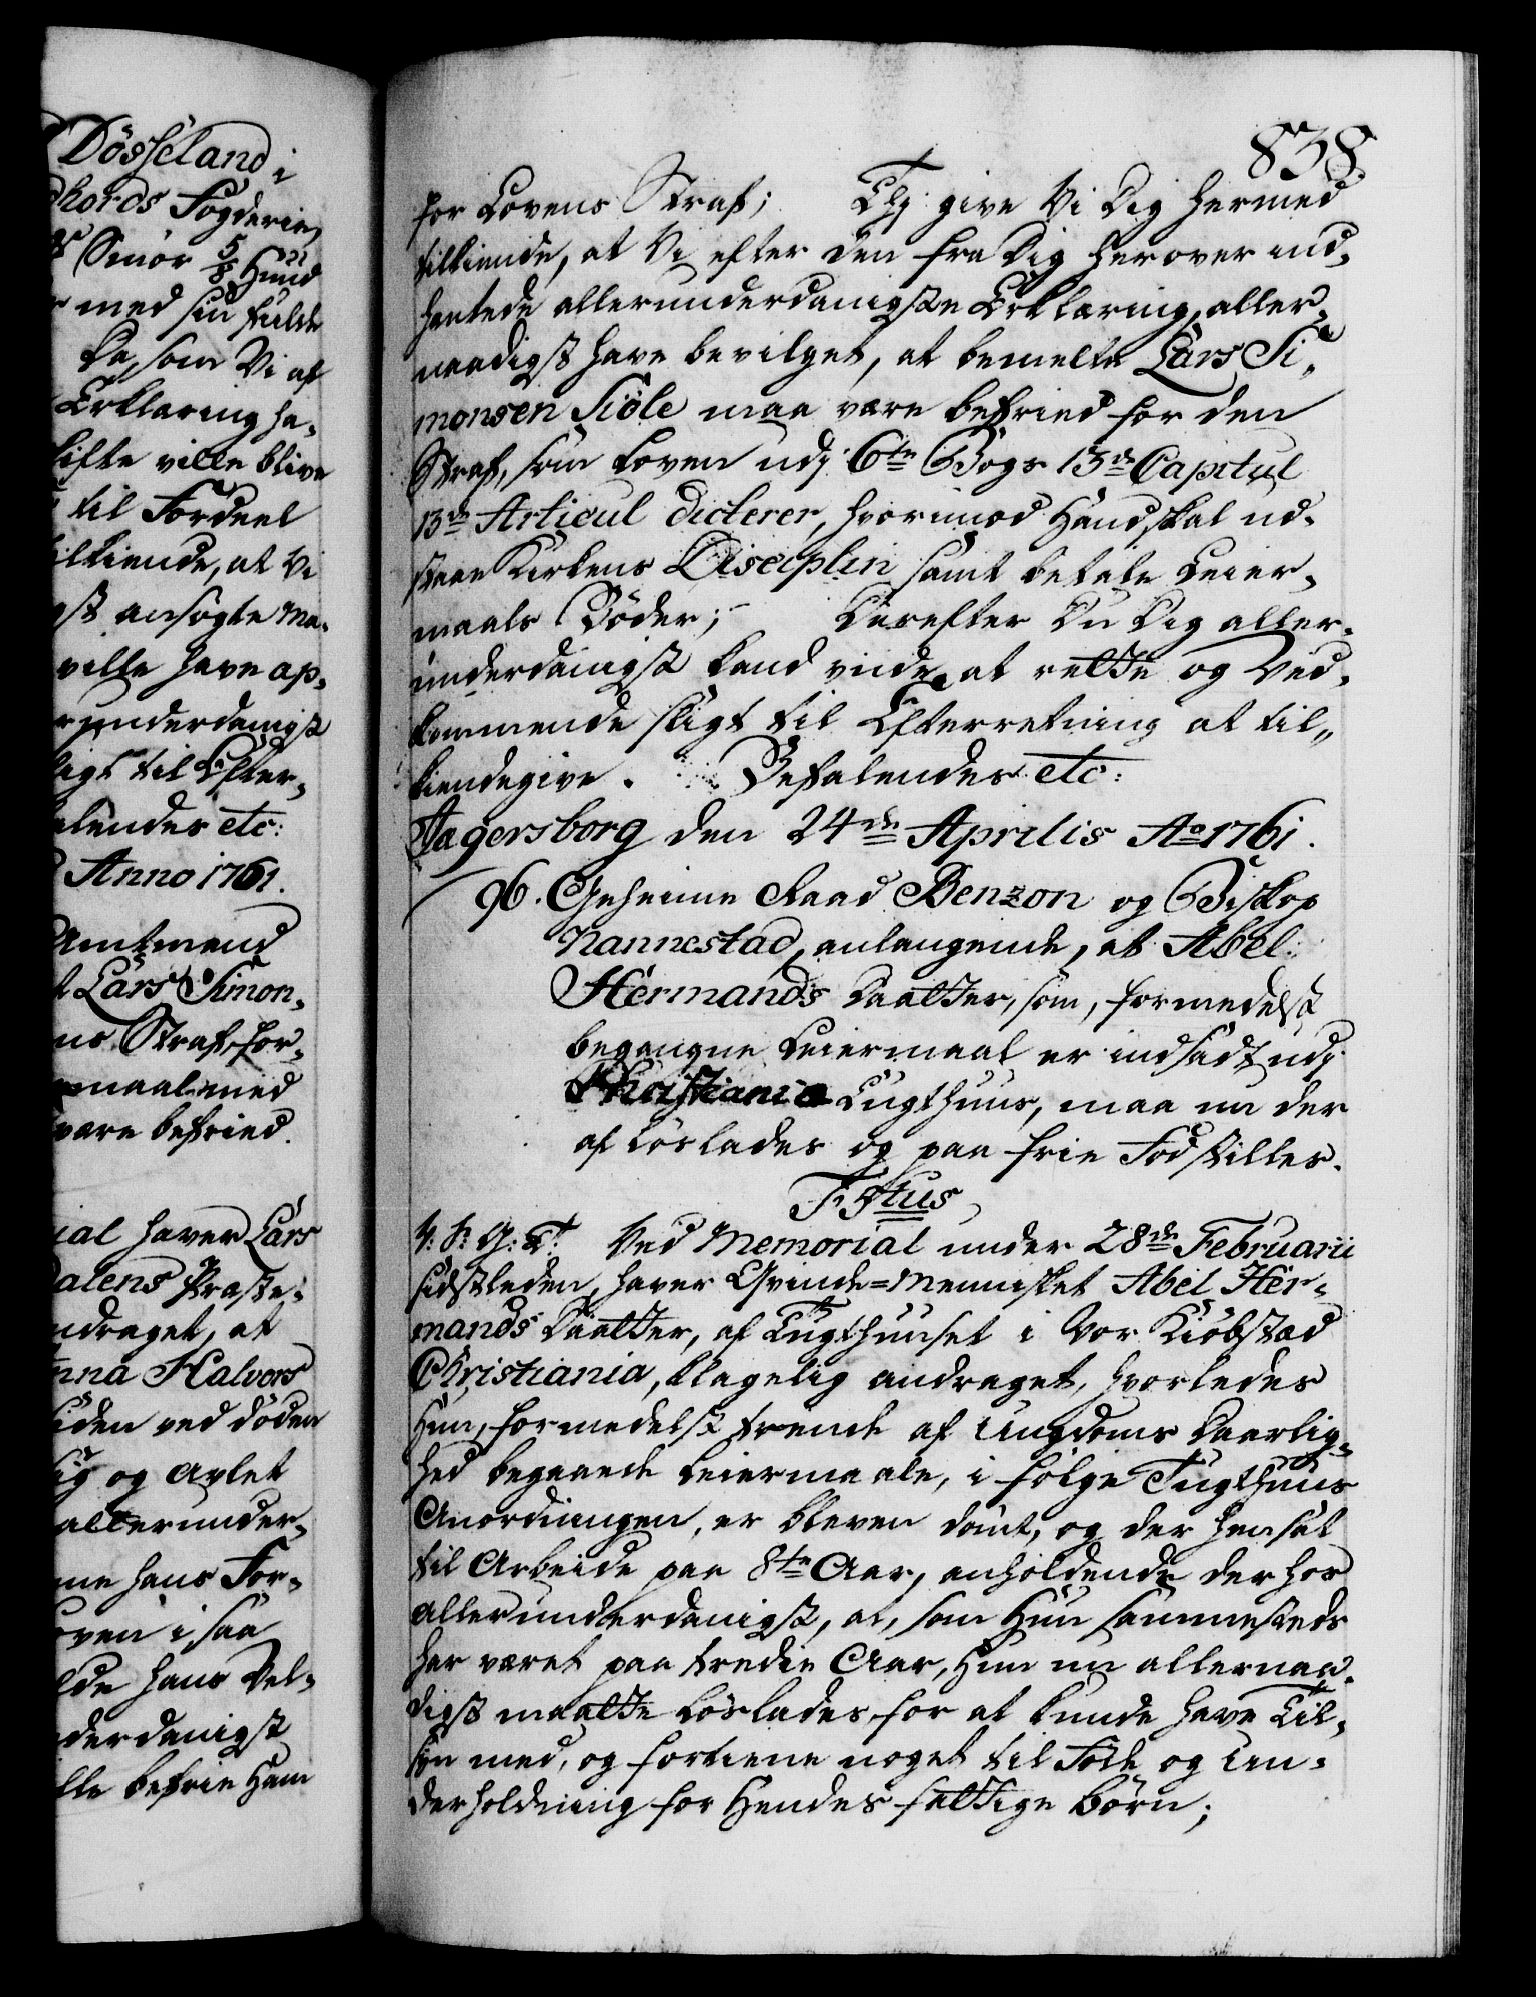 Dösseland i
hords Fogderie,
Smör 5/8 Hund
med sin fulde
da, som Vi af
Erklæring ha-
skifte ville blive
til Fordeel
tilkiende, at Vi
ansögte Ma-
ville have ap-
underdanigst
sligt til Efter-
alendes etc:
Anno 1761.
Amtmand
Lars Simon-
ns Straf for
maal med
være befried.
ial haver Lars
dalens Præste-
ndraget, at
nna Halvors
siden ved döden
sig og avlet
allerunder-
ne hans For-
oven i saa
lde hans Vel-
derdanigst
lle befrie Ham
838.
for Lovens Straf; Thj give Vi Dig hermed
tilkiende, at Vi efter den fra Dig herover ind-
hentede allerunderdanigste Erklæring, aller-
naadigst have bevilget, at bemelte Lars Si-
monsen Siöle maa være befried for den
Straf, som Loven udj 6te Bogs 13de Capitul
13de Articul dicterer, hvorimod Hand skal ud-
staae Kirkens Disciplin samt betale Leier-
maals Böder; Derefter Du Dig aller-
underdanigst hand vide at rette og Ved-
kommende sligt til Efterretning at til-
kiendegive. Befalendes etc:
Jægersborg den 24de Aprilis Ao 1761.
96. Geheime Raad Benzon og Biskop
Nannestad, anlangende, at Abel
Hermands Daatter, som, formedelst
begangne Leiermaal er indsadt udj
Christiania Tugthuus, maa nu der
af löslades og paa frie Fod stilles.
F: 5tus
V: S: G: T: Ved Memorial under 28de Februarii
sidstleden, haver Qvinde-Mennisket Abel Her-
mands Daatter, af Tugthuuset i Vor Kiöbstad
Christiania, klagelig andraget, hvorledes
Hun, formedelst trende af Ungdoms Daarlig-
hed begaaede Leiermaale, i fölge Tugthuus
Anordningen, er bleven dömt, og der hensat
til Arbeide paa 8te Aar, anholdende derhos
allerunderdanigst, at, som Hun sammesteds
har været paa tredie Aar, Hun nu allernaa-
digst maatte löslades for at kunde have Til-
syn med, og fortiene noget til Föde og Un-
derholdning for Hendes fattige Börn;